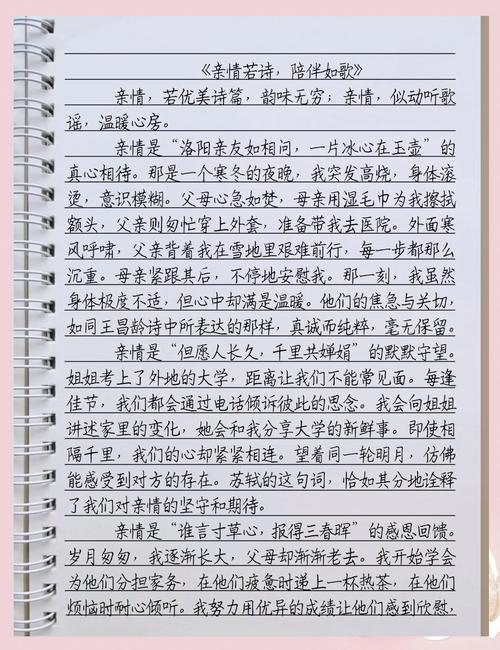 《亲情若诗，陪伴如歌》
亲情，若优美诗篇，韵味无穷；亲情，似动听歌
谣，温暖心房。
亲情是“洛阳亲友如相问，一片冰心在玉壶”的
真心相待。那是一个寒冬的夜晚，我突发高烧，身体滚
烫，意识模糊。父母心急如焚，母亲用湿毛巾为我擦拭
额头，父亲则匆忙穿上外套，准备带我去医院。外面寒
风呼啸，父亲背着我在雪地里艰难前行，每一步都那么
沉重。母亲紧跟其后，不停地安慰我。那一刻，我虽然
身体极度不适，但心中却满是温暖。他们的焦急与关切，
如同王昌龄诗中所表达的那样，真诚而纯粹，毫无保留。
亲情是“但愿人长久，千里共婵娟”的默默守望。
姐姐考上了外地的大学，距离让我们不能常见面。每逢
佳节，我们都会通过电话倾诉彼此的思念。我会向姐姐
讲述家里的变化，她会和我分享大学的新鲜事。即使相
隔千里，我们的心却紧紧相连。望着同一轮明月，仿佛
能感受到对方的存在。苏轼的这句词，恰如其分地诠释
了我们对亲情的坚守和期待。
亲情是“谁言寸草心，报得三春晖”的感恩回馈。
岁月匆匆，我逐渐长大，父母却渐渐老去。我开始学会
为他们分担家务，在他们疲惫时递上一杯热茶，在他们
烦恼时耐心倾听。我努力用优异的成绩让他们感到欣慰，